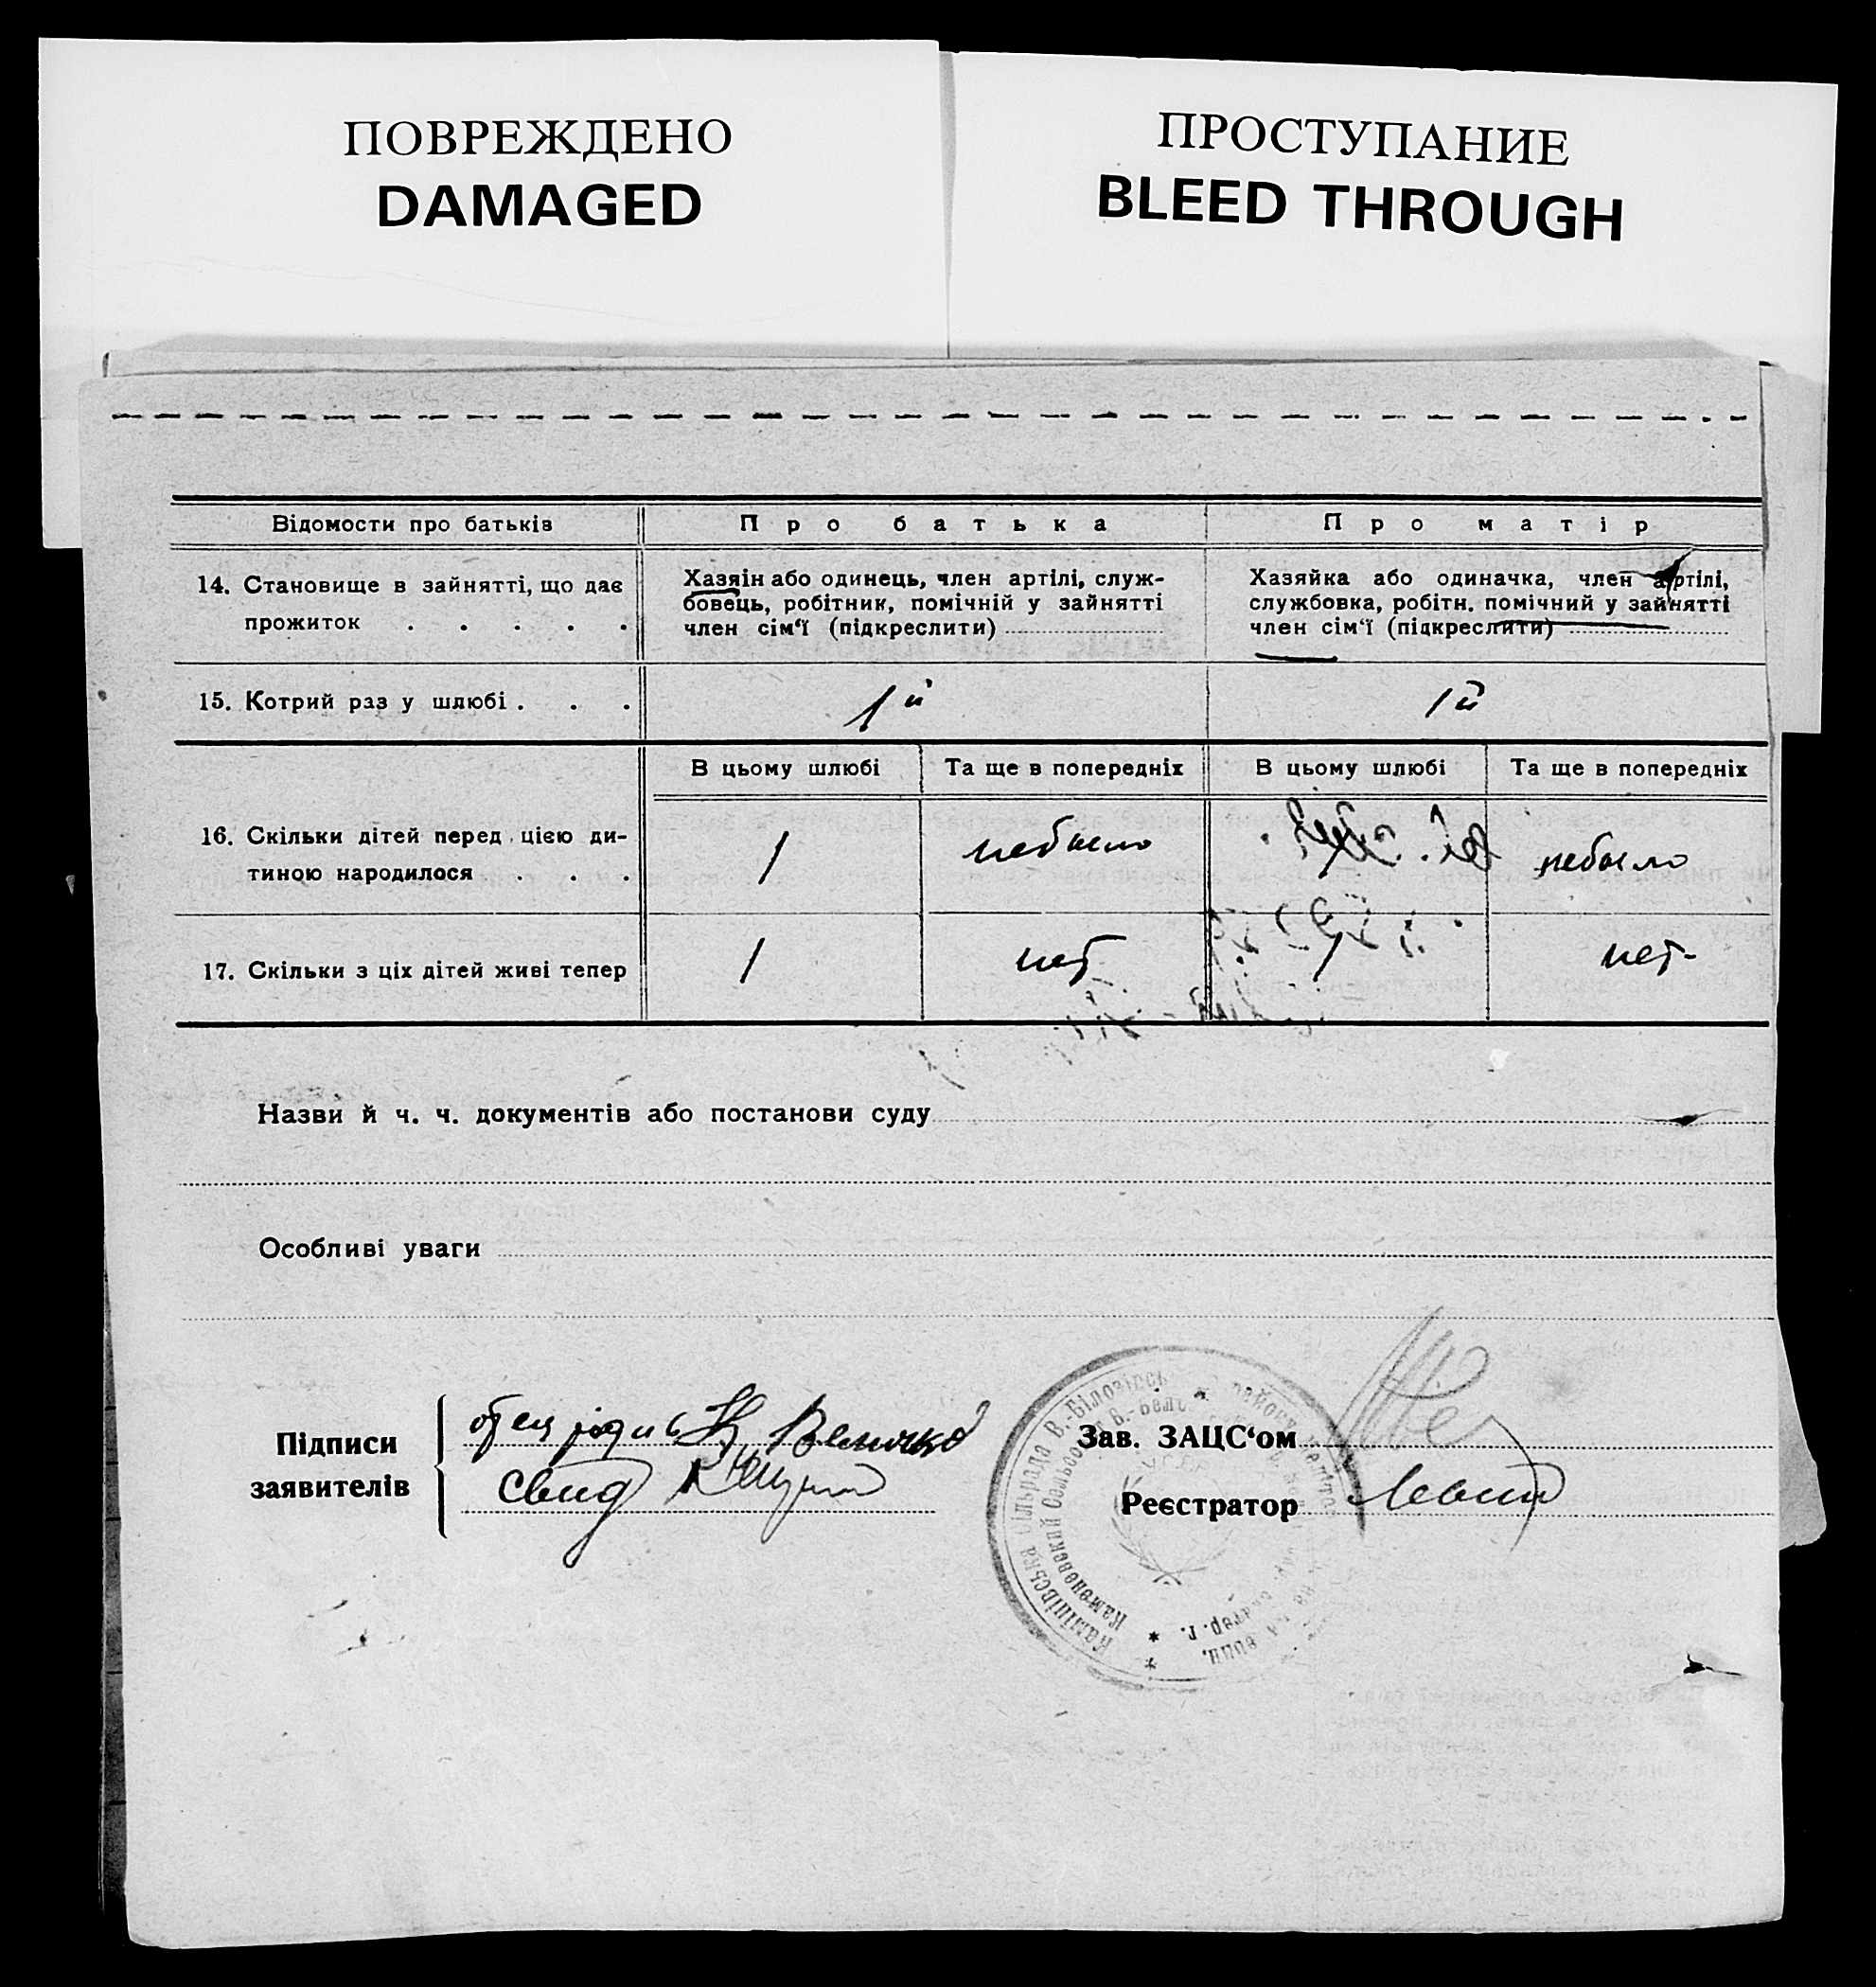 ПОВРЕЖДЕНО
DAMAGED
ПРОСТУПАНИЕ
BLEED THROUGH
Відомости про батьків
Про батька
Про матір
14. Становище в зайнятті, що дає
прожиток . . . . .
Хазяін або одинець, член артілі, служ-
бовець, робітник, помічній у зайнятті
член сім‘ї (підкреслити)
Хазяйка або одиначка, член артілі,
службовка, робітн. помічний у зайнятті
член сім‘ї (підкреслити)
15. Котрий раз у шлюбі . . .
1й
1й
В цьому шлюбі
Та ще в попередніх
В цьому шлюбі
Та ще в попередніх
16. Скільки дітей перед цією ди-
тиною народилося . . .
1
небыло
1
небыло
17. Скільки з ціх дітей живі тепер
1
нет
1
нет
Назви й ч. ч. документів або постанови суду
Особливі уваги
Підписи
заявителів
отец
Величко
свид
Зав. ЗАЦС‘ом
Реєстратор
Сільрада В.-Білозірсь
Каменовский Сельсо